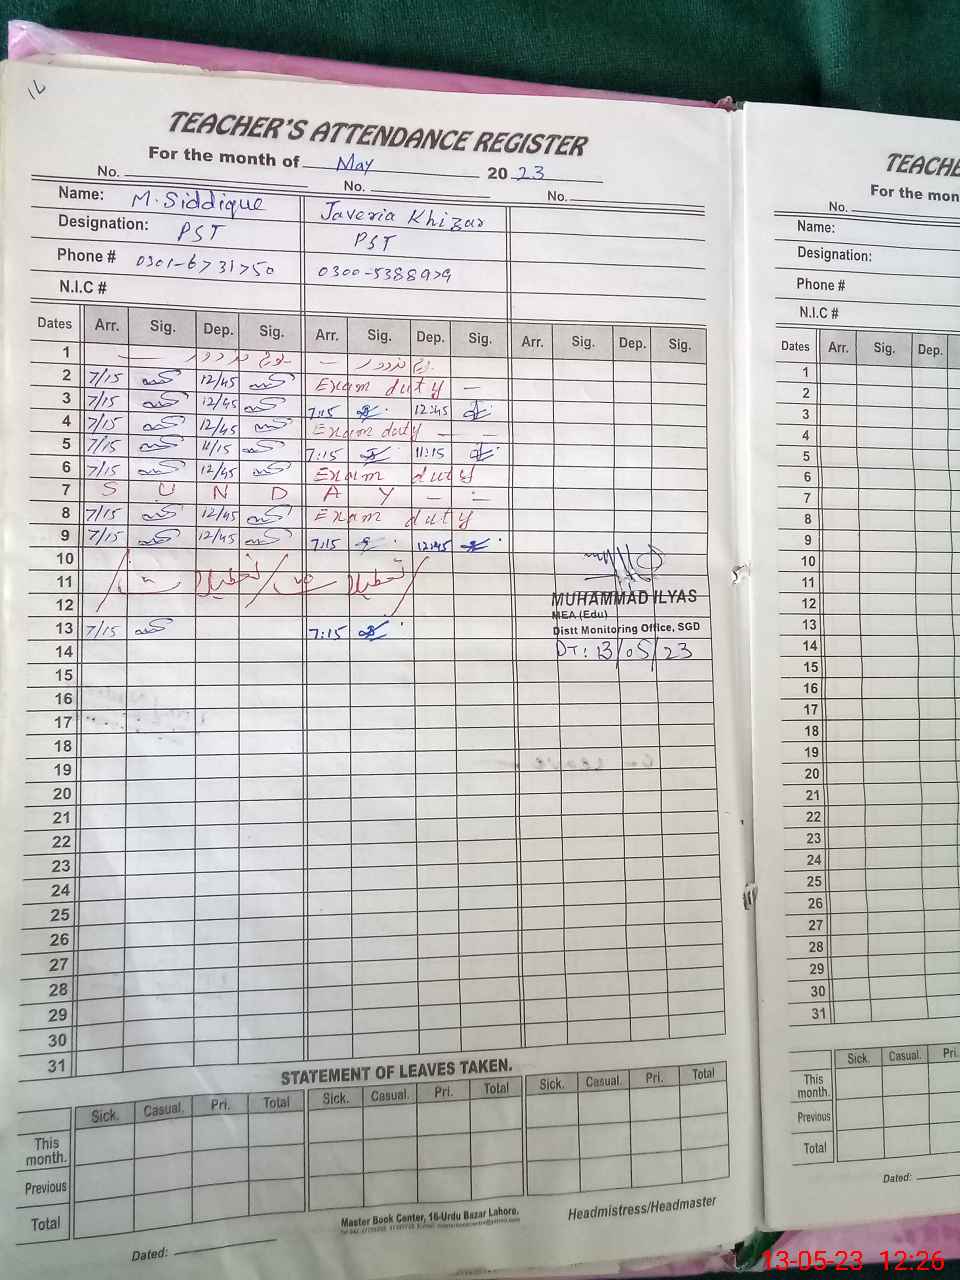 TEACHER'S ATTENDANCE REGISTER
For the month of May 2023
No. No. No.
Name: M. Siddique Javeria Khizar
Designation: PST PST
Phone # 0301-6731750 0300-5388979
N.I.C #
Dates Arr. Sig. Dep. Sig. Arr. Sig. Dep. Sig. Arr. Sig. Dep. Sig.
1
2 7/15 12/45 Exam duty —
3 7/15 12/45 7:15 12:45
4 7/15 12/45 Exam duty — —
5 7/15 11/15 7:15 11:15
6 7/15 12/45 Exam duty
7 S U N D A Y — —
8 7/15 12/45 Exam duty
9 7/15 12/45 7:15 12:45
10
11 تعطیلات تعطیلات
12
13 7/15 7:15
MUHAMMAD ILYAS
MEA (Edu)
Distt Monitoring Office, SGD
DT: 13/05/23
14
15
16
17
18
19
20
21
22
23
24
25
26
27
28
29
30
31
STATEMENT OF LEAVES TAKEN.
Sick. Casual. Pri. Total Sick. Casual. Pri. Total Sick. Casual. Pri. Total
This month.
Previous
Total
Master Book Center, 16-Urdu Bazar Lahore.
Headmistress/Headmaster
Dated:
TEACHE
For the mon
No.
Name:
Designation:
Phone #
N.I.C #
Dates Arr. Sig. Dep.
1
2
3
4
5
6
7
8
9
10
11
12
13
14
15
16
17
18
19
20
21
22
23
24
25
26
27
28
29
30
31
Sick. Casual. Pri.
This month.
Previous
Total
Dated:
13-05-23 12:26